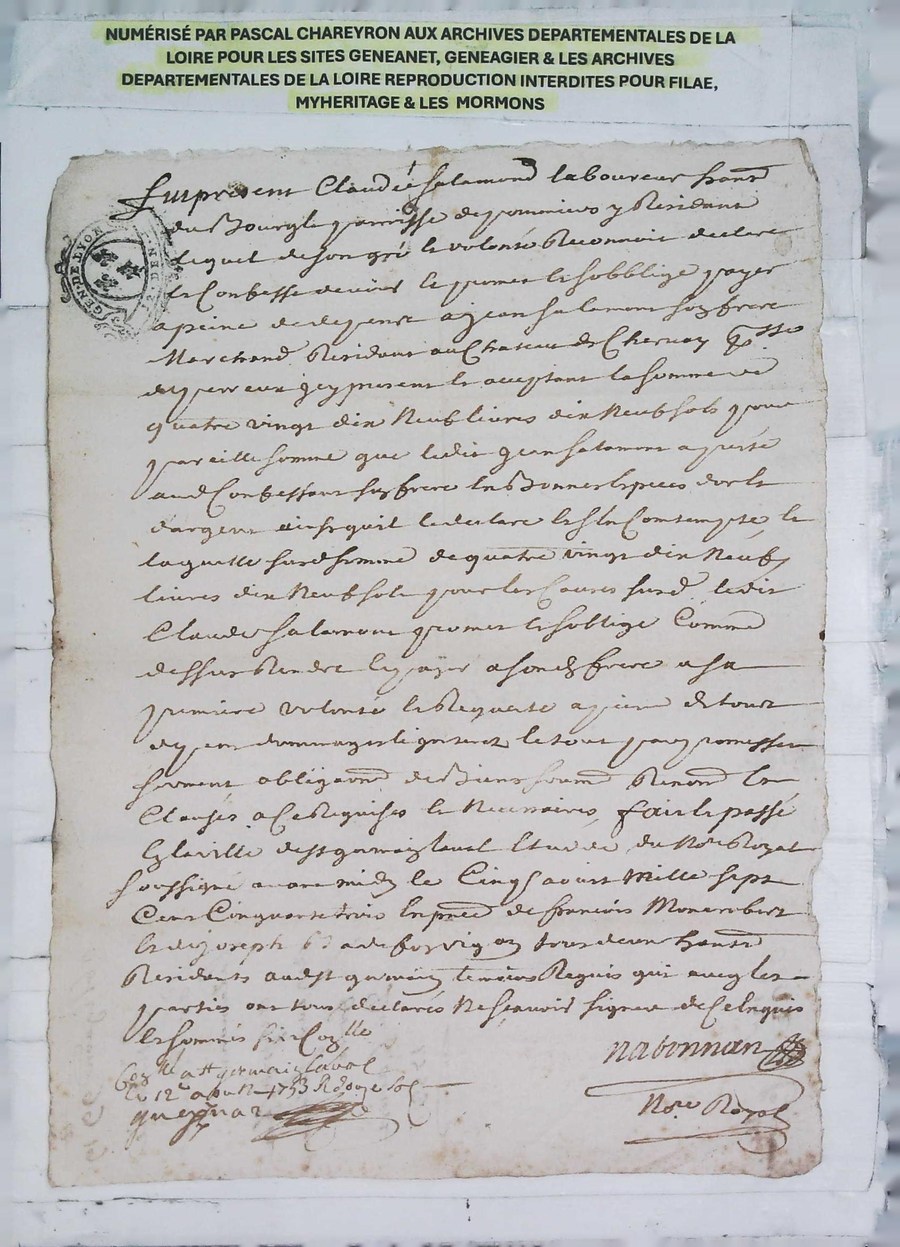 NUMÉRISÉ PAR PASCAL CHAREYRON AUX ARCHIVES DEPARTEMENTALES DE LA
LOIRE POUR LES SITES GENEANET, GENEAGIER & LES ARCHIVES
DEPARTEMENTALES DE LA LOIRE REPRODUCTION INTERDITES POUR FILAE,
MYHERITAGE & LES MORMONS
GEN DE LYON
Fut présent Claude Salamond laboureur
du parroisse de pommiers y Residant
lequel de son gré et volonté Reconnoit declare
et Confesse devoir et promet et sobblige payer
a peine de depens a jean Salamont son frere
Marchand Residant au Chateau de Chervay
de perreux icy present et acceptant la somme de
quatre vingt dix Neuf livres dix Neuf sols pour
pareille somme que ledit jean Salamont a
aud Confessant son frere en Bonnes Especes dor et
dargent ainsy quil le declare et sen Contempte, et
laquelle surd somme de quatre vingt dix Neuf
livres dix Neuf sols pour les Causes surd. ledit
Claude Salamont promet et soblige Comme
dessus Rendre et payer a son d frere a sa
premiere volonté et Requeste a peine de tout
depens dommages et interet le tout par promesse
serment obligaond de Biens soumd Renond et
Clauses a Ce Requises et Necessaires, fait et passé
En la ville de St germain laval Etude du Nore Royal
soussigné avant midy le Cinq aoust Mille sept
Cens Cinquante trois En pnce de françois
et de joseph
Residents aud St germain temoins Requis qui avec les
parties ont tous declarés Ne sçavoir signer de Ce Enquis
et sommés
nabonnan
Nore Royal
a St germain Laval
Le 12e aoust 1753 R douze sols